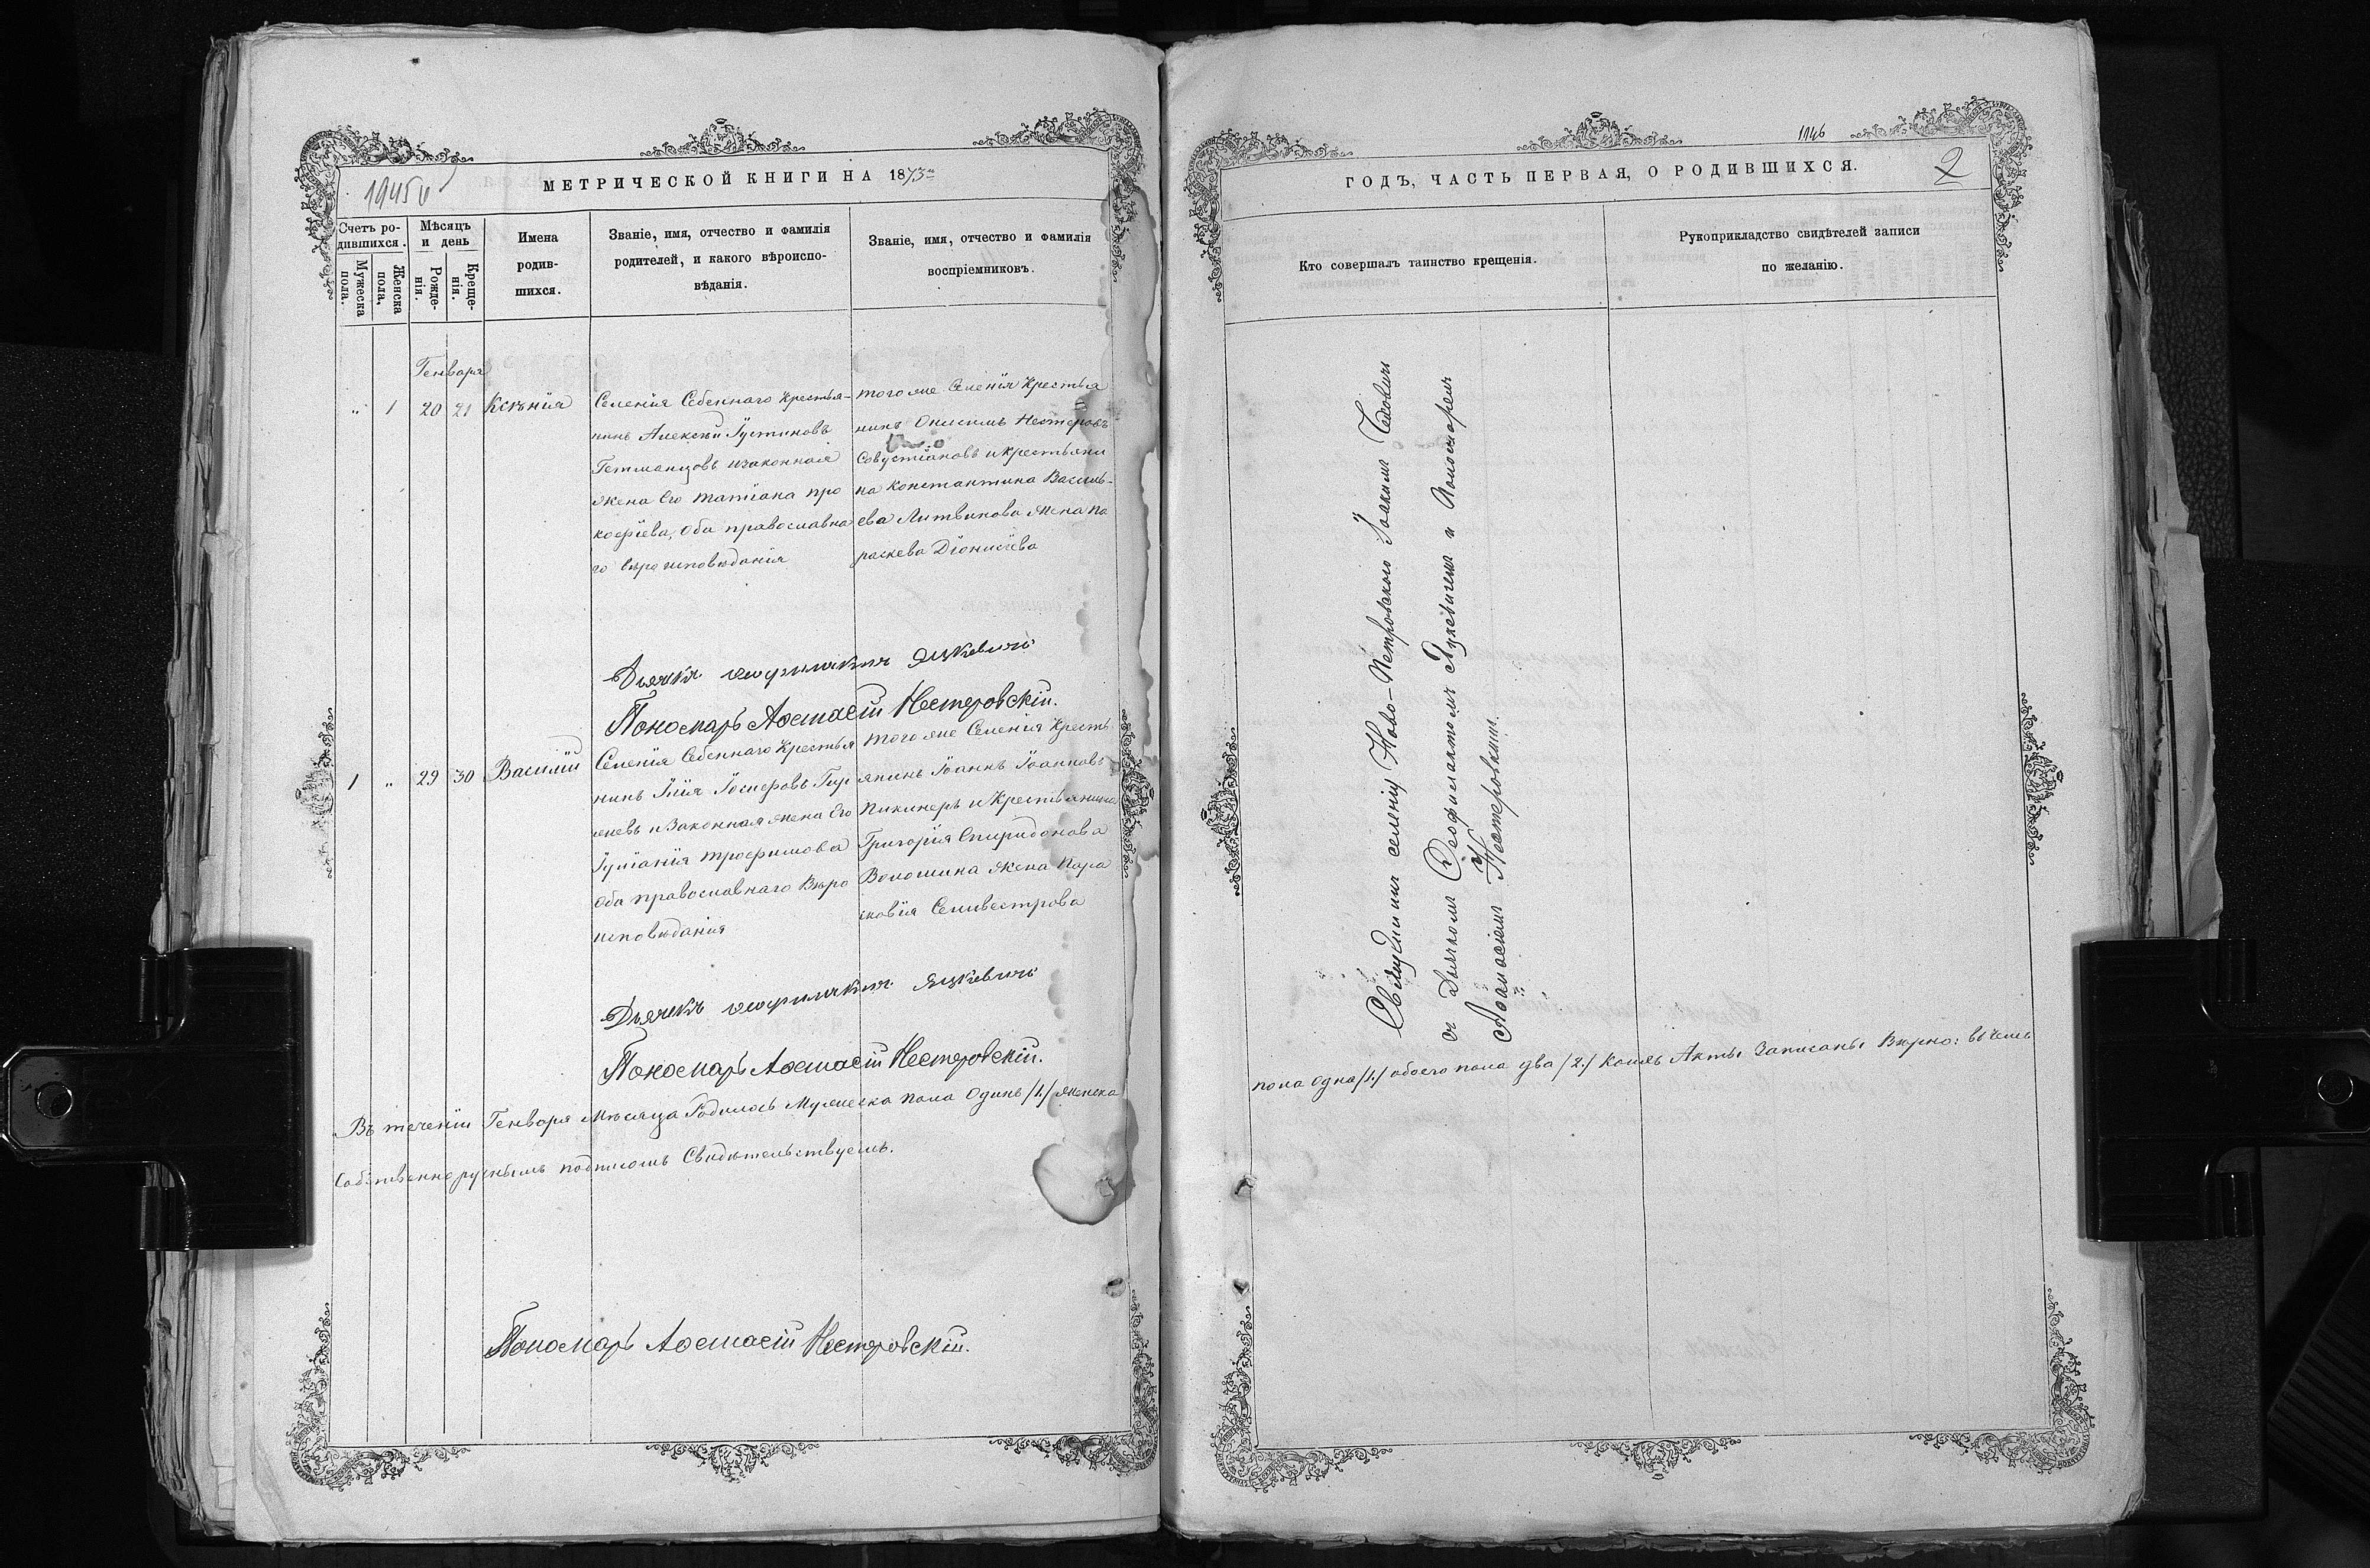 МЕТРИЧЕСКОЙ КНИГИ НА 1873й
Счетъ родившихся.
Мужеска пола.
Женска пола.
Мѣсяцъ и день
Рожденія.
Крещенія.
Имена родившихся.
Званіе, имя, отчество и фамилія
родителей, и какого вѣроиспо-
вѣданія.
Званіе, имя, отчество и фамилія
воспріемниковъ.
Генваря
" 1 20 21 Ксѣнія
Селенія Себеннаго Крестья-
нинъ Алексѣй Іустиновъ
Гетманцовъ и законная
жена Его Татіана Про
кофіева, Оба православна
го вѣроисповѣданія
того же Селенія Крестья
нинъ Онисимъ Нестеровъ
Совустіановъ и крестьяни
на Константина Василь-
ева Литвинова жена Па
раскева Діонисіева
Дьячекъ Ѳеофилактъ Яцкевичъ
Пономарь Аѳанасій Нестеровскій.
1 " 29 30 Василій
Селенія Себеннаго Крестья
нинъ Іосифовъ
и Законная жена Его
Іуліанія Трофимова
Оба православнаго Вѣро
исповѣданія
того же Селенія Кресть
янинъ Іоаннъ Іоанновъ
Пикинеръ и Крестьянина
Григорія Спиридонова
Волошина жена Пара
сковія Селивестрова
Дьячекъ Ѳеофилактъ Яцкевичъ
Пономарь Аѳанасій Нестеровскій.
Въ теченіи Генваря Мѣсяца Родилось Мужеска пола Одинъ /1./ женска
Собственноручнымъ подписомъ Свидѣтельствуемъ.
Пономарь Аѳанасій Нестеровскій.
1146
2
ГОДЪ, ЧАСТЬ ПЕРВАЯ, О РОДИВШИХСЯ.
Кто совершалъ таинство крещенія.
Рукоприкладство свидѣтелей записи
по желанію.
Священникъ селенія Ново-Петровского Іоакимъ
съ Дьячкомъ Ѳеофилактомъ Яцкевичемъ и Пономаремъ
Аѳанасіемъ Нестеровскимъ.
пола Одна /1./ обоего пола два /2./ Коихъ Акты Записаны Вѣрно: въ чемъ